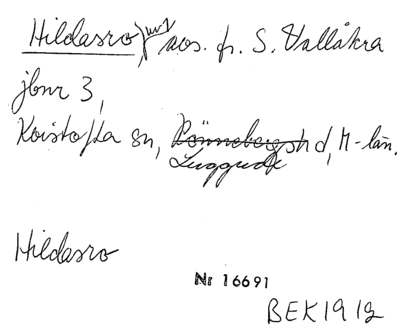 Hildasro, avs. fr. S. Vallåkra
jbnr 3,
Kvistofta sn, Rönnebergs hd, M-län.
Luggude
Hildasro
Nr 16691
BEK 1912